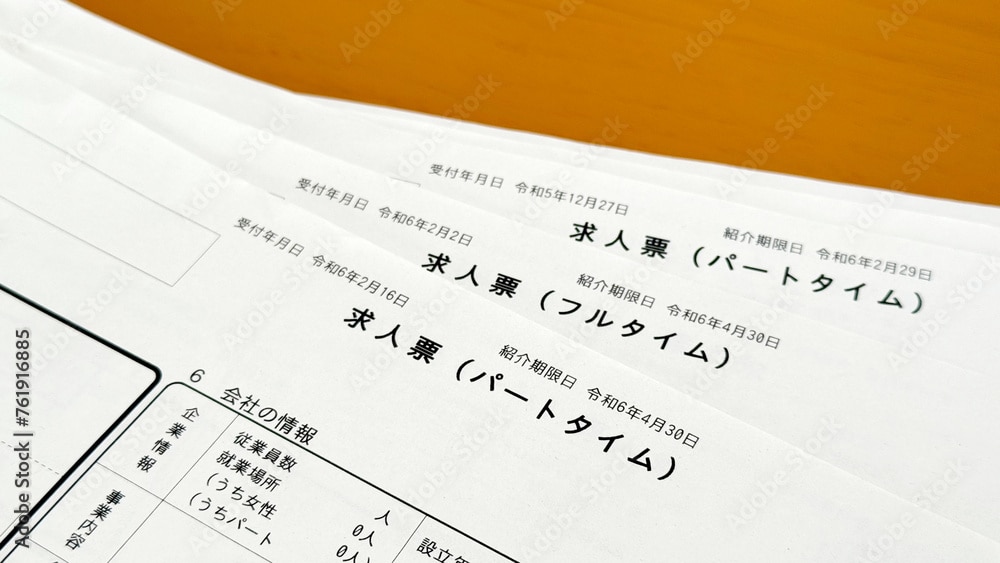 受付年月日 令和5年12月27日
紹介期限日 令和6年2月29日
求人票（パートタイム）
受付年月日 令和6年2月2日
紹介期限日 令和6年4月30日
求人票（フルタイム）
受付年月日 令和6年2月16日
紹介期限日 令和6年4月30日
求人票（パートタイム）
6 会社の情報
企業情報
従業員数
就業場所 人
（うち女性 0人
（うちパート 0人）
設立
事業内容
Adobe Stock | #761916885
Adobe Stock